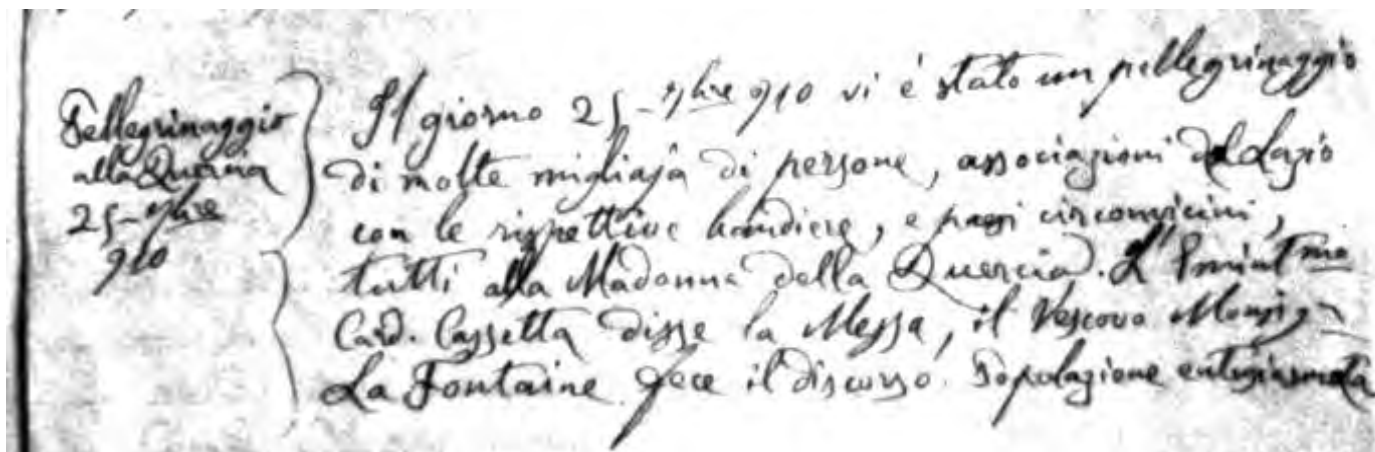 Pellegrinaggio
alla Quercia
25-7bre
910
Il giorno 25-7bre 910 vi è stato un pellegrinaggio
di molte migliaja di persone, associazioni del Lazio
con le rispettive bandiere, e paesi circonvicini,
tutti alla Madonna della Quercia. L'Eminentmo
Card. Cassetta disse la Messa, il Vescovo Monsig.
La Fontaine fece il discorso. Popolazione entusiasmata